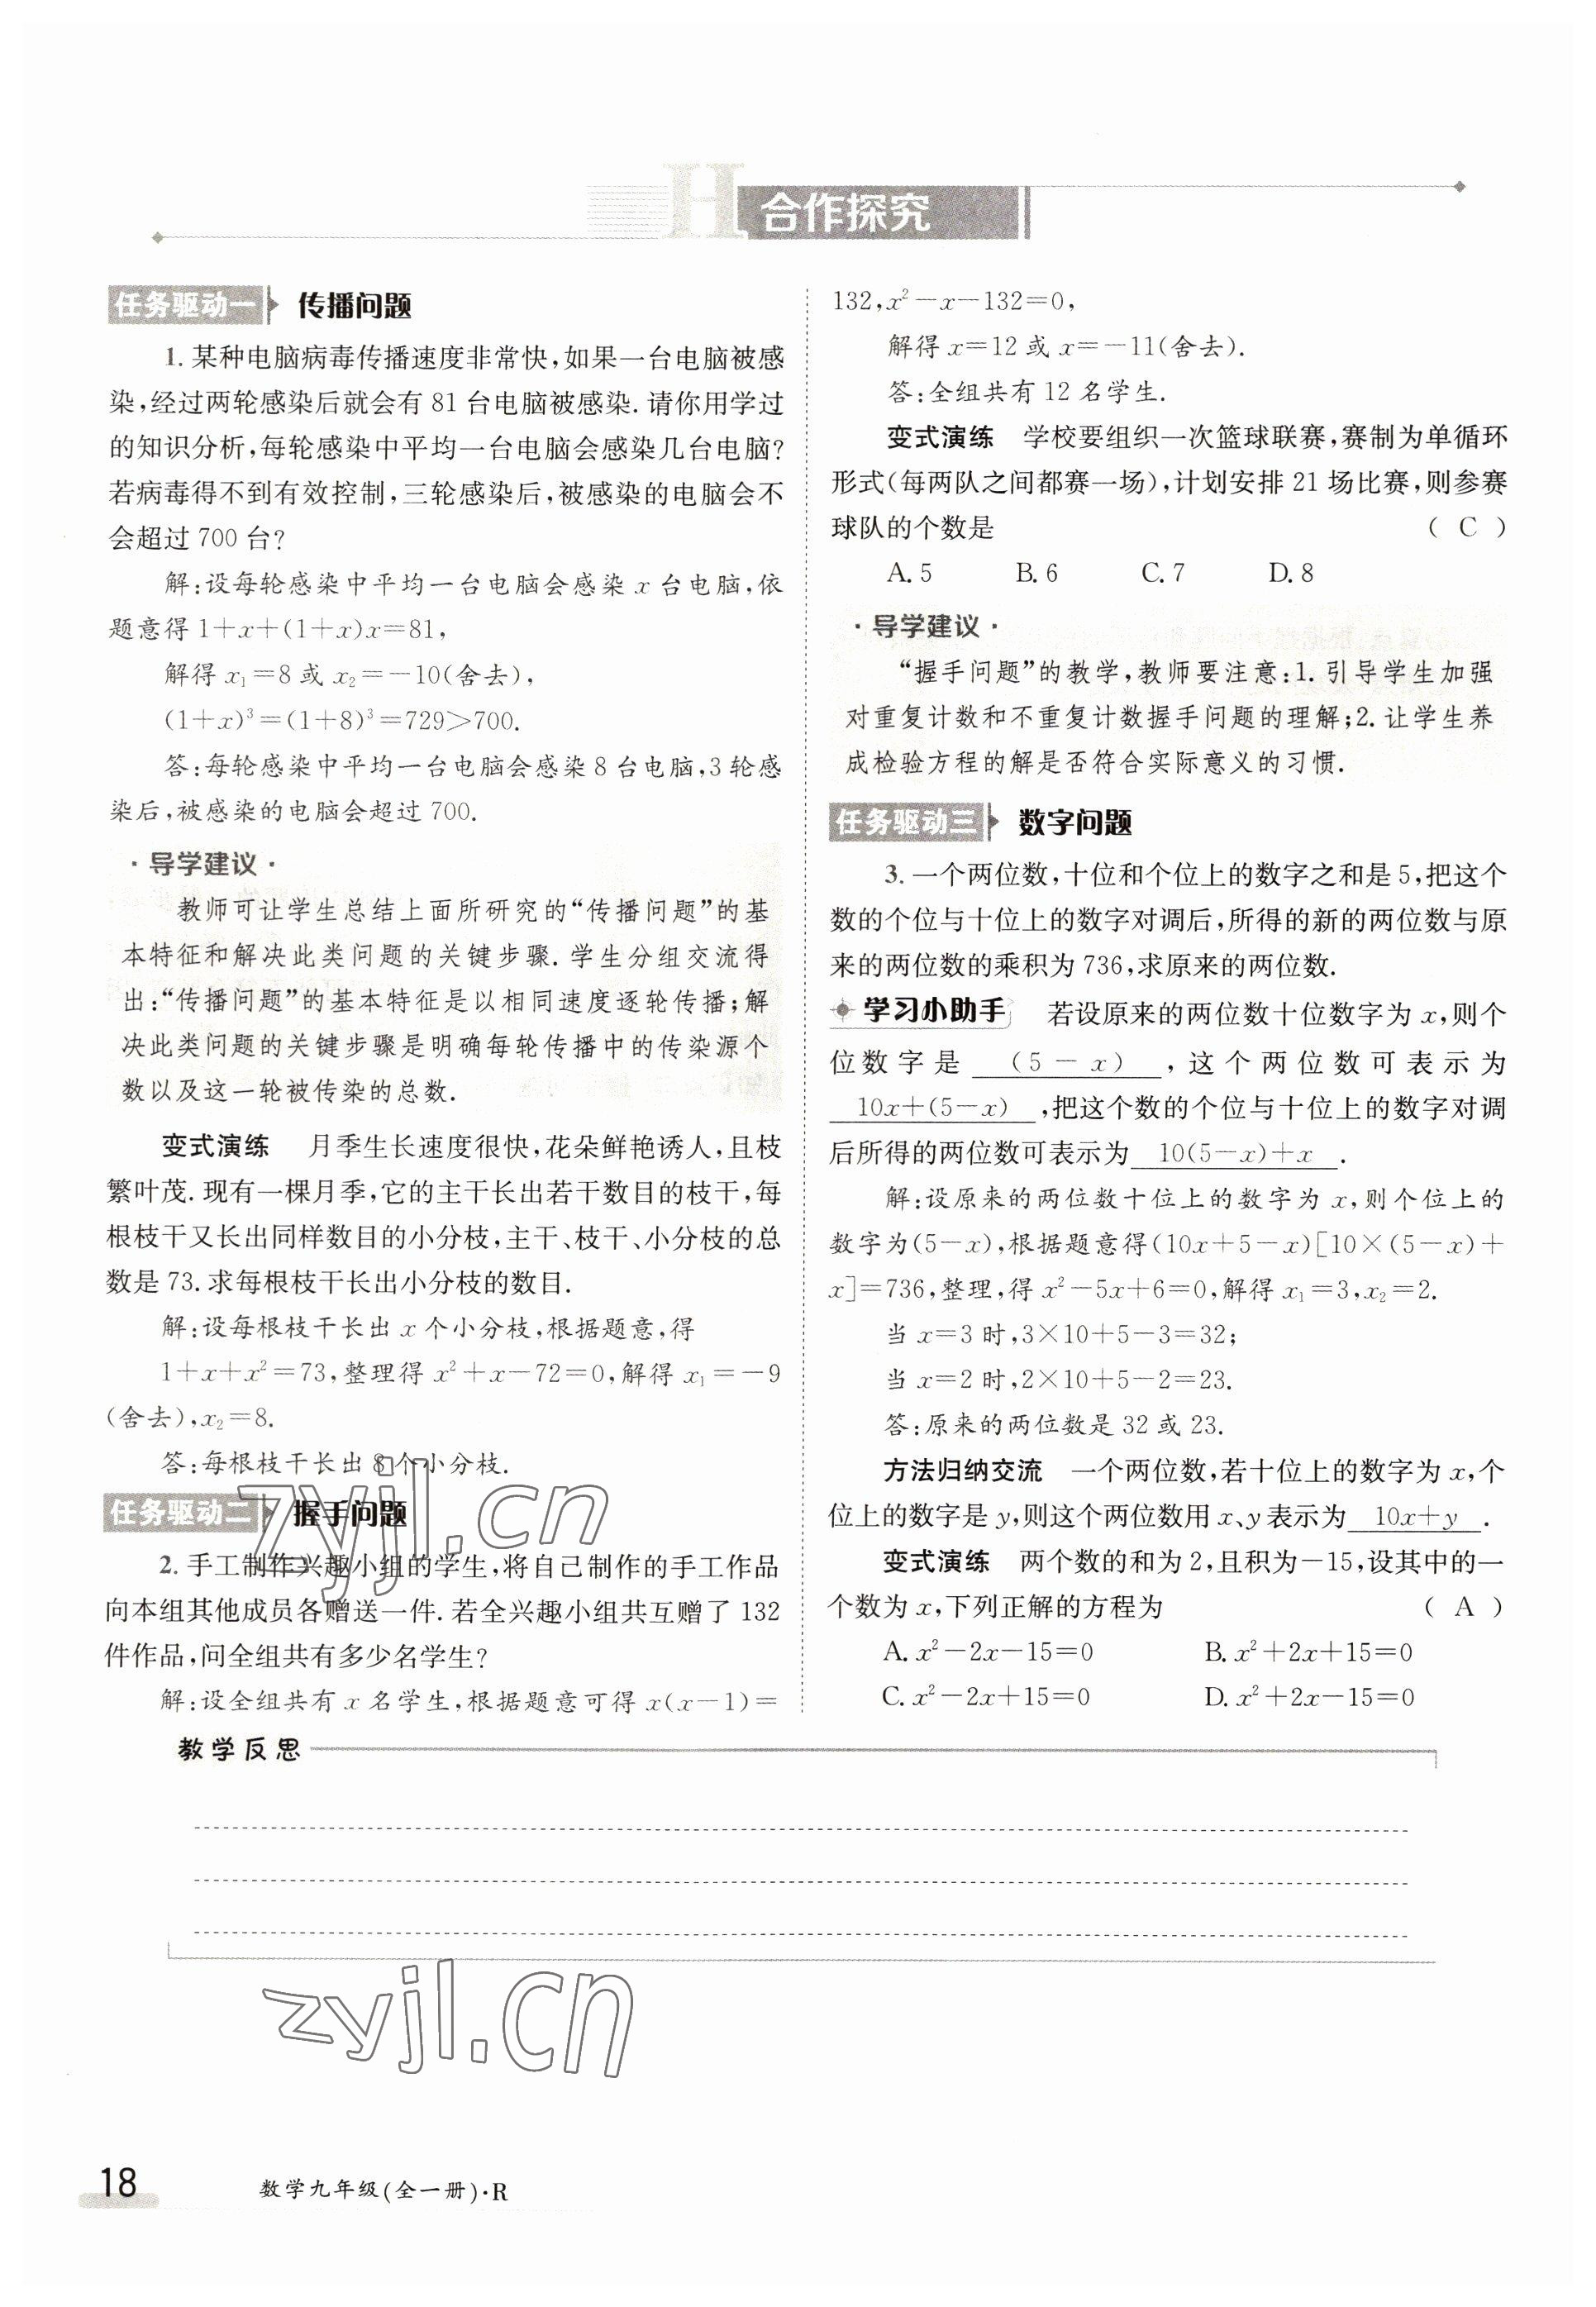 H 合作探究
任务驱动一 传播问题
1. 某种电脑病毒传播速度非常快,如果一台电脑被感
染,经过两轮感染后就会有 81 台电脑被感染. 请你用学过
的知识分析,每轮感染中平均一台电脑会感染几台电脑?
若病毒得不到有效控制,三轮感染后,被感染的电脑会不
会超过 700 台?
解:设每轮感染中平均一台电脑会感染 x 台电脑,依
题意得 1+x+(1+x)x=81,
解得 x₁=8 或 x₂=-10(舍去),
(1+x)³=(1+8)³=729>700.
答:每轮感染中平均一台电脑会感染 8 台电脑,3 轮感
染后,被感染的电脑会超过 700.
· 导学建议 ·
教师可让学生总结上面所研究的“传播问题”的基
本特征和解决此类问题的关键步骤. 学生分组交流得
出:“传播问题”的基本特征是以相同速度逐轮传播;解
决此类问题的关键步骤是明确每轮传播中的传染源个
数以及这一轮被传染的总数.
变式演练 月季生长速度很快,花朵鲜艳诱人,且枝
繁叶茂. 现有一棵月季,它的主干长出若干数目的枝干,每
根枝干又长出同样数目的小分枝,主干、枝干、小分枝的总
数是 73. 求每根枝干长出小分枝的数目.
解:设每根枝干长出 x 个小分枝,根据题意,得
1+x+x²=73,整理得 x²+x-72=0,解得 x₁=-9
(舍去),x₂=8.
答:每根枝干长出 8 个小分枝.
任务驱动二 握手问题
2. 手工制作兴趣小组的学生,将自己制作的手工作品
向本组其他成员各赠送一件. 若全兴趣小组共互赠了 132
件作品,问全组共有多少名学生?
解:设全组共有 x 名学生,根据题意可得 x(x-1)=
132,x²-x-132=0,
解得 x=12 或 x=-11(舍去).
答:全组共有 12 名学生.
变式演练 学校要组织一次篮球联赛,赛制为单循环
形式(每两队之间都赛一场),计划安排 21 场比赛,则参赛
球队的个数是 ( C )
A. 5 B. 6 C. 7 D. 8
· 导学建议 ·
“握手问题”的教学,教师要注意:1. 引导学生加强
对重复计数和不重复计数握手问题的理解;2. 让学生养
成检验方程的解是否符合实际意义的习惯.
任务驱动三 数字问题
3. 一个两位数,十位和个位上的数字之和是 5,把这个
数的个位与十位上的数字对调后,所得的新的两位数与原
来的两位数的乘积为 736,求原来的两位数.
学习小助手 若设原来的两位数十位数字为 x,则个
位数字是 (5-x) ,这个两位数可表示为
10x+(5-x) ,把这个数的个位与十位上的数字对调
后所得的两位数可表示为 10(5-x)+x .
解:设原来的两位数十位上的数字为 x,则个位上的
数字为(5-x),根据题意得(10x+5-x)[10×(5-x)+
x]=736,整理,得 x²-5x+6=0,解得 x₁=3,x₂=2.
当 x=3 时,3×10+5-3=32;
当 x=2 时,2×10+5-2=23.
答:原来的两位数是 32 或 23.
方法归纳交流 一个两位数,若十位上的数字为 x,个
位上的数字是 y,则这个两位数用 x、y 表示为 10x+y .
变式演练 两个数的和为 2,且积为-15,设其中的一
个数为 x,下列正解的方程为 ( A )
A. x²-2x-15=0 B. x²+2x+15=0
C. x²-2x+15=0 D. x²+2x-15=0
zyjl.cn
教学反思
zyjl.cn
18 数学九年级(全一册)·R